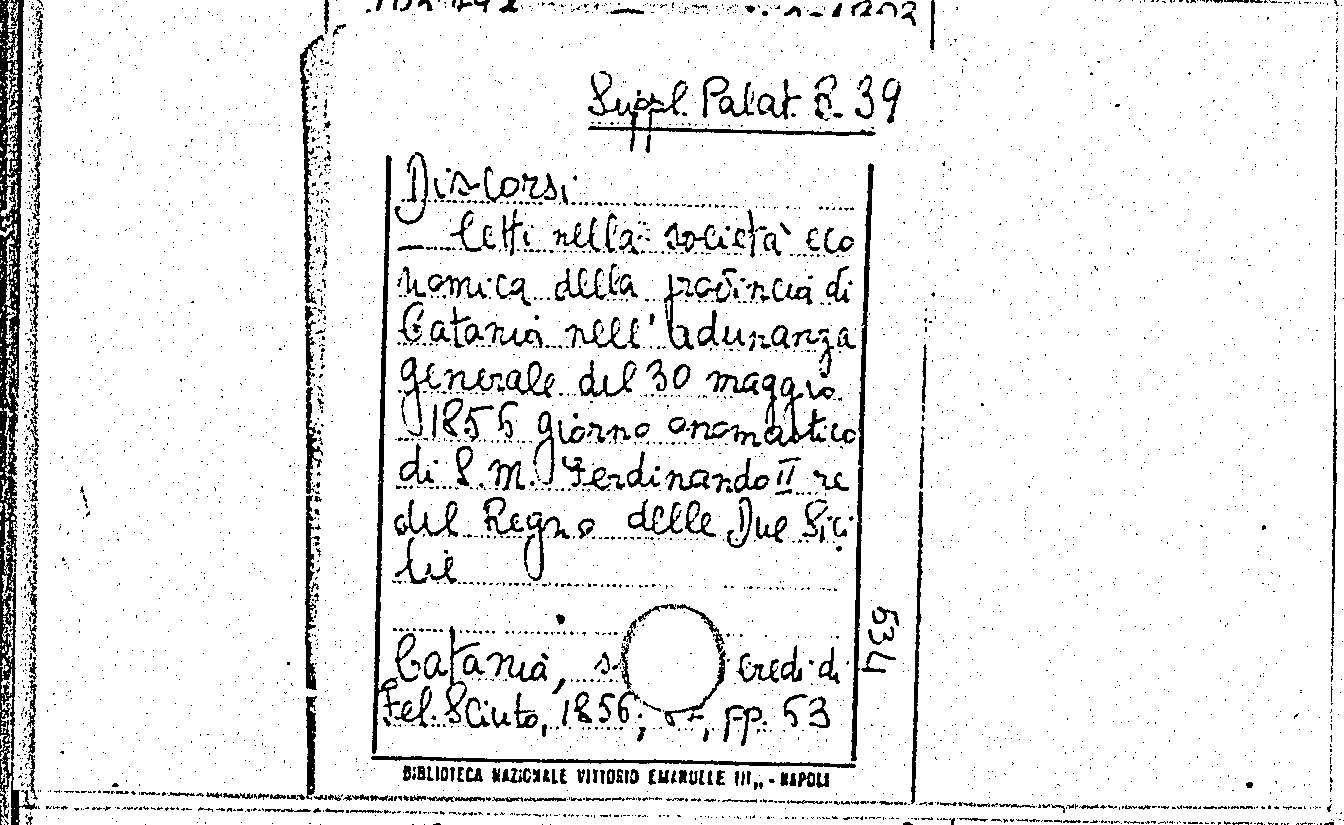 Suppl. Palat. B. 39
Discorsi
— letti nella società eco
nomica della provincia di
Catania nell' adunanza
generale del 30 maggio
1856 giorno onomastico
di S. M. Ferdinando II re
del Regno delle Due Sici
lie
Catania, eredi di
Fel. Sciuto, 1856; pp. 53
534
BIBLIOTECA NAZIONALE VITTORIO EMANUELE III,, - NAPOLI